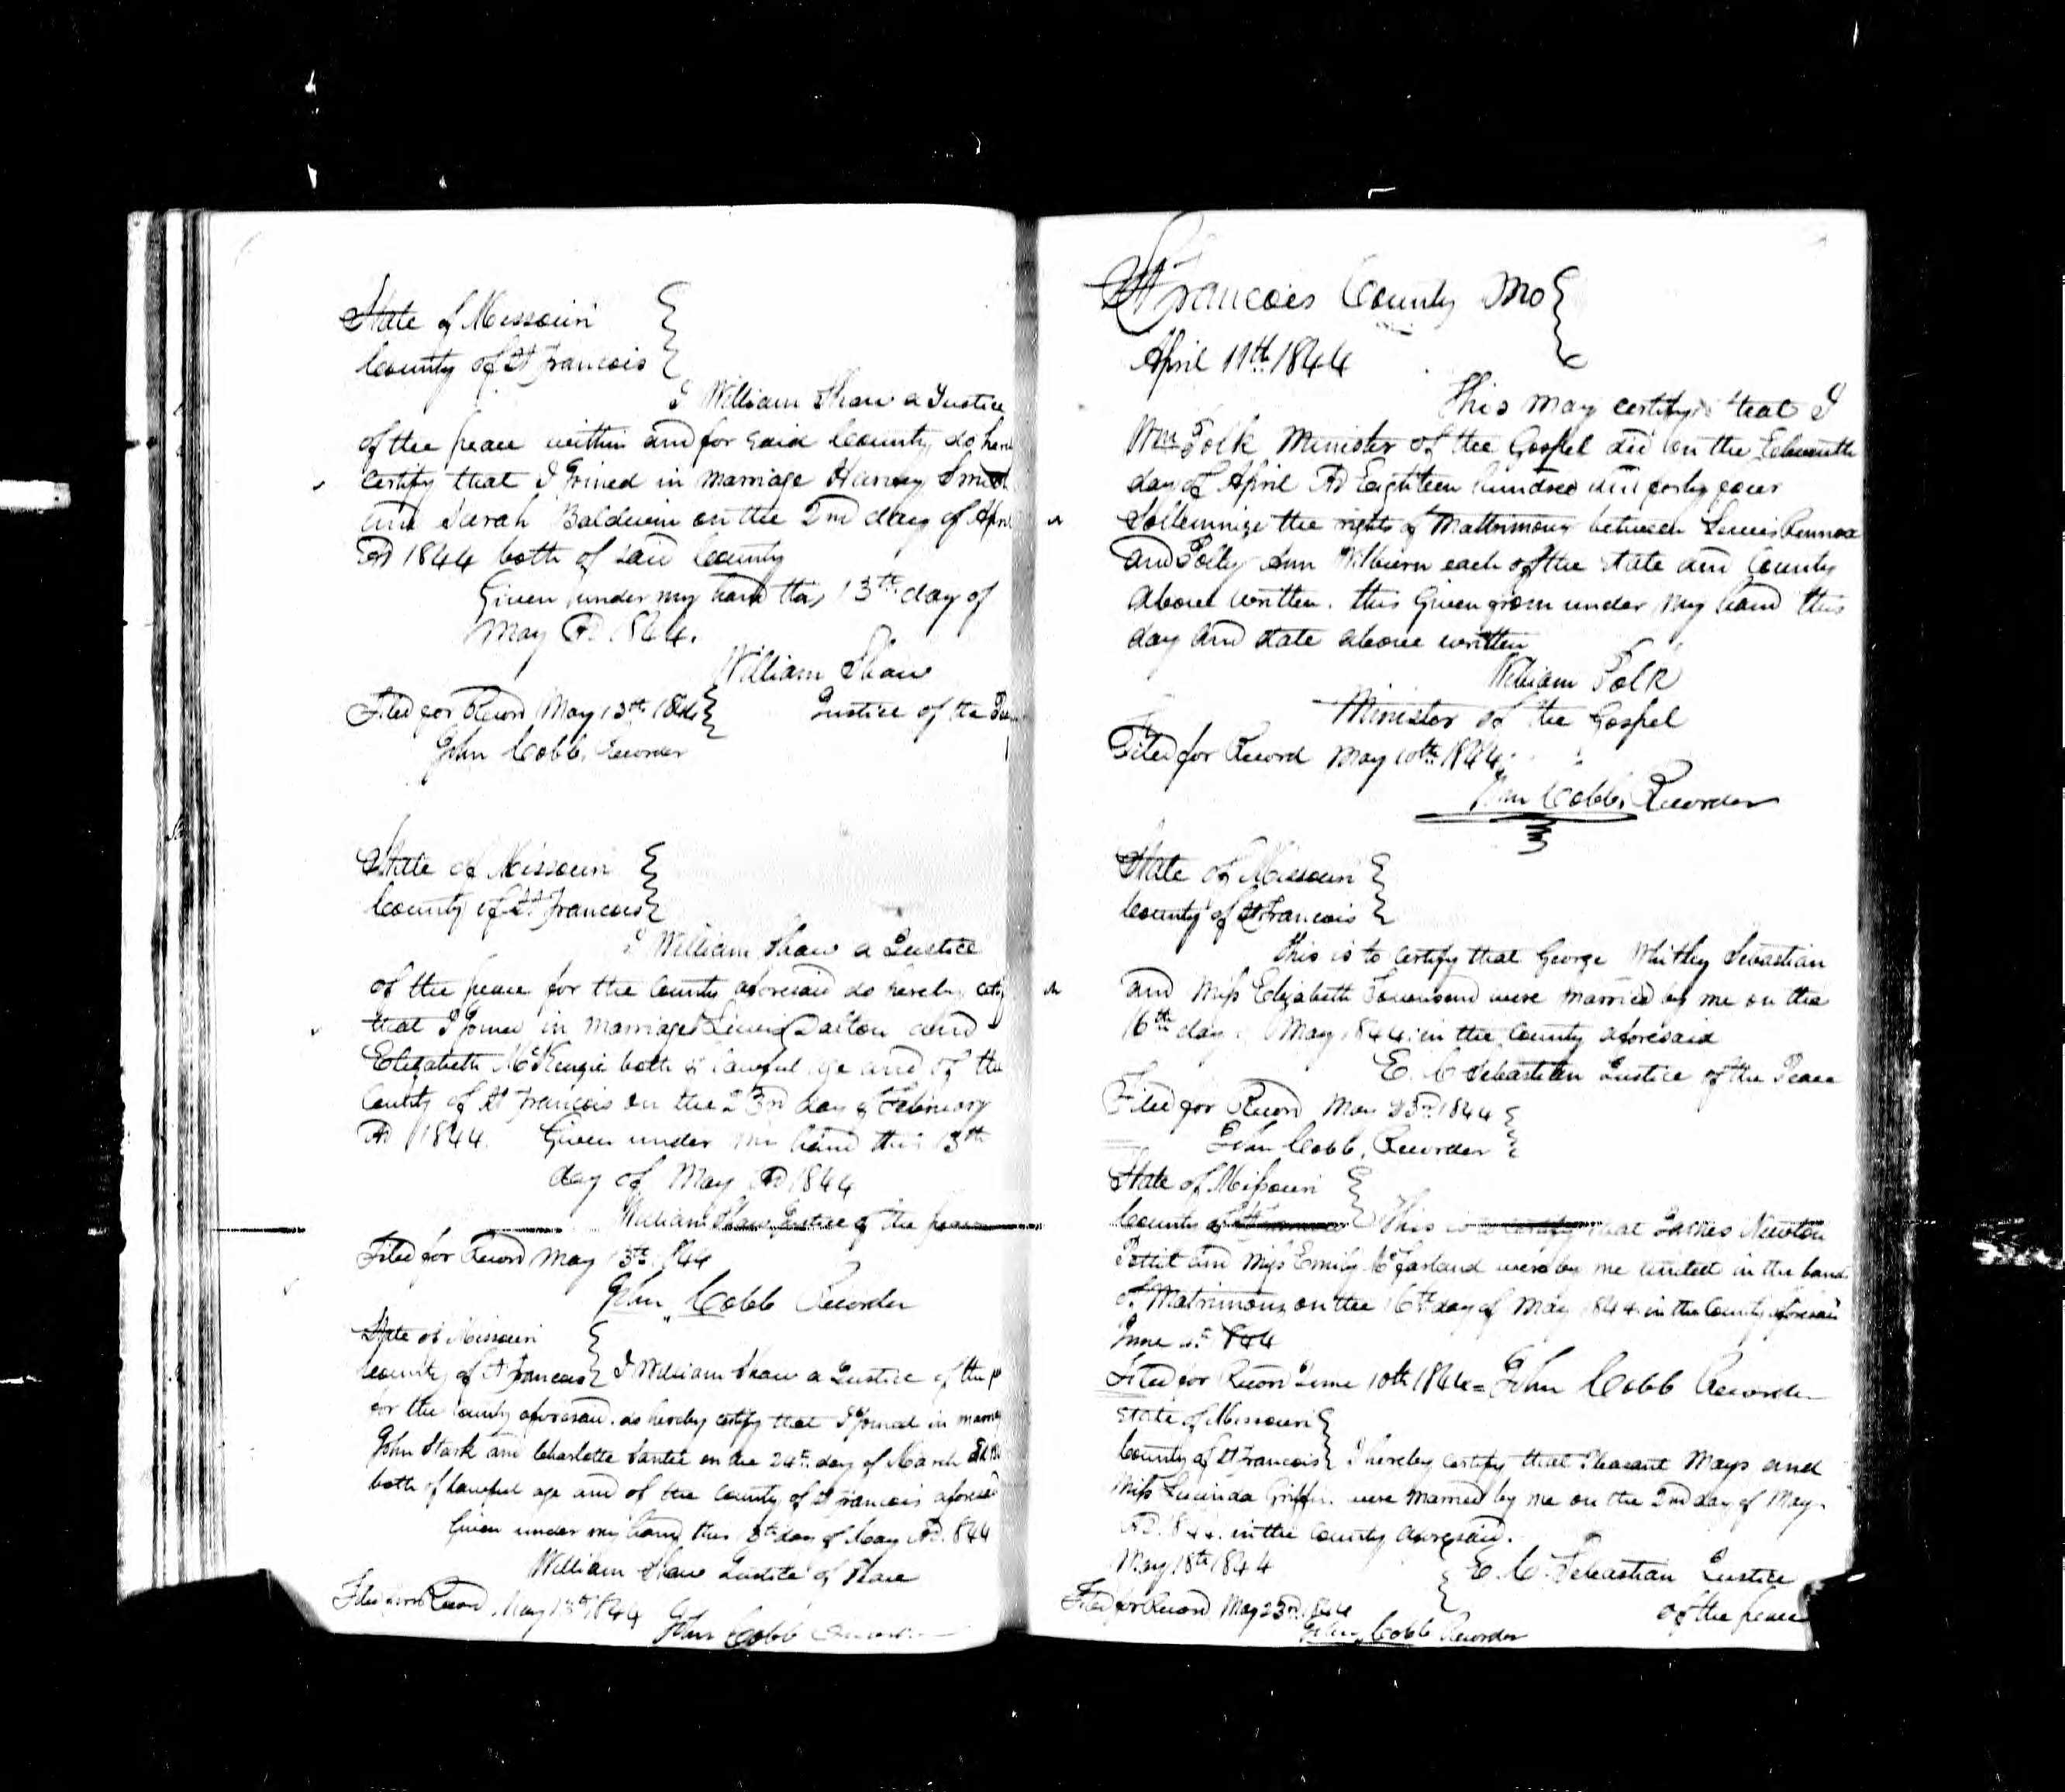 State of Missouri
County of St Francois
I William Shaw a Justice
of the peace within and for said County do here
certify that I Joined in marriage Harvey Smith
and Sarah Baldwin on the 2nd day of Apri
AD 1844 both of said County
Given under my hand this 13th day of
May AD 1844.
William Shaw
Filed for Record May 13th 1844 Justice of the
John Cobb, Recorder
State of Missouri
County of St Francois
I William Shaw a Justice
of the peace for the County aforesaid do hereby
that I Joined in marriage Lewis Dalton and
Elizabeth McKenzie both of lawful age and of the
County of St Francois on the 23rd day of February
AD 1844. Given under my hand this 13th
day of May AD 1844
William Shaw Justice of the peace
Filed for Record May 13th 1844
John Cobb Recorder
State of Missouri
County of St Francois I William Shaw a Justice of the p
for the County aforesaid, do hereby certify that I Joined in
John Stark and Charlotte on the 24th day of March
both of lawful age and of the County of St Francois
Given under my hand this 13th day of May AD. 1844
William Shaw Justice of Peace
Filed for Record, May 13th 1844 John Cobb Recorder
St Francois County Mo
April 11th 1844
This may certify that I
Wm Polk Minister of the Gospel did on the Eleventh
day of April AD Eighteen hundred and forty four
Sollemnize the rights of Mattrimony between Lewis
and Polly Ann Wilburn each of the State and County
above written. this Given from under my hand this
day and date above written
William Polk
Minister of the Gospel
Filed for Record May 10th 1844.
John Cobb, Recorder
State of Missouri
County of St Francois
This is to certify that George Whitley Sebastian
and Miss Elizabeth Townsend were married by me on the
16th day of May 1844. in the County aforesaid
E. C Sebastian Justice of the Peace
Filed for Record May 23rd 1844
John Cobb, Recorder
State of Missouri
County of St Francois This is to certify that James Newton
Pettit and Miss Emily McFarland were by me united in the band
of Matrimony on the 16th day of May 1844 in the County aforesaid
June 1844
Filed for Record June 10th 1844 = John Cobb Recorder
State of Missouri
County of St Francois I hereby certify that Pleasant Mays and
Miss Lucinda Griffin were married by me on the 2nd day of May
AD. 1844. in the County aforesaid.
May 18th 1844 E. C. Sebastian Justice
Filed for Record May 23rd 1844 of the peace
John Cobb Recorder